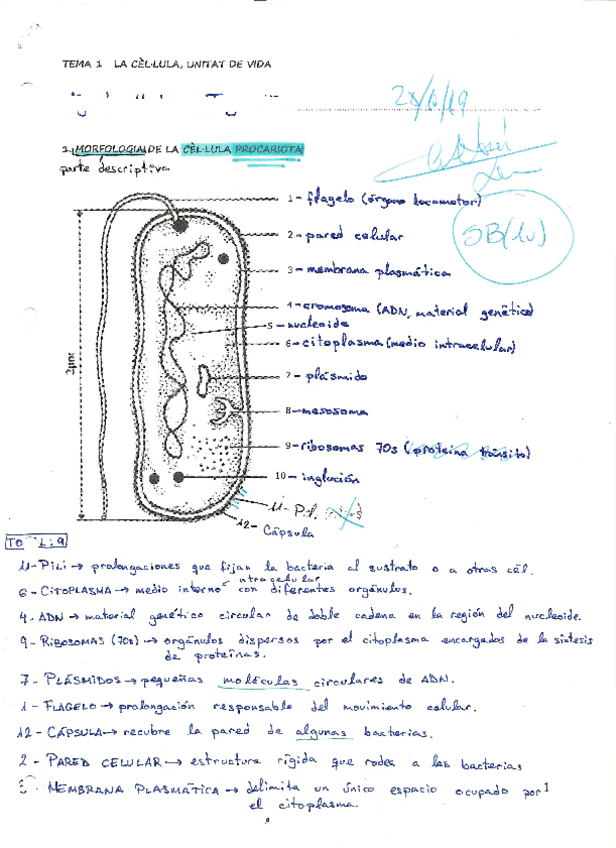 TEMA 1 LA CÈL·LULA, UNITAT DE VIDA
1. MORFOLOGIA DE LA CÈL·LULA PROCARIOTA
parte descriptiva
1 - flagelo (órgano locomotor)
SB(10)
2 - pared celular
3 - membrana plasmática
4 - cromosoma (ADN, material genético)
5 - nucleoide
6 - citoplasma (medio intracelular)
7 - plásmido
8 - mesosoma
9 - ribosomas 70s (proteína tránsito)
10 - inglución
11 - Pili
12 - Cápsula
2µm
11 - PILI → prolongaciones que fijan la bacteria al sustrato o a otras cél.
6 - CITOPLASMA → medio interno intracelular con diferentes orgánulos.
4 - ADN → material genético circular de doble cadena en la región del nucleoide.
9 - RIBOSOMAS (70s) → orgánulos dispersos por el citoplasma encargados de la síntesis
de proteínas.
7 - PLÁSMIDOS → pequeñas moléculas circulares de ADN.
1 - FLAGELO → prolongación responsable del movimiento celular.
12 - CÁPSULA → recubre la pared de algunas bacterias.
2 - PARED CELULAR → estructura rígida que rodea a las bacterias
3 - MEMBRANA PLASMÁTICA → delimita un único espacio ocupado por
el citoplasma.